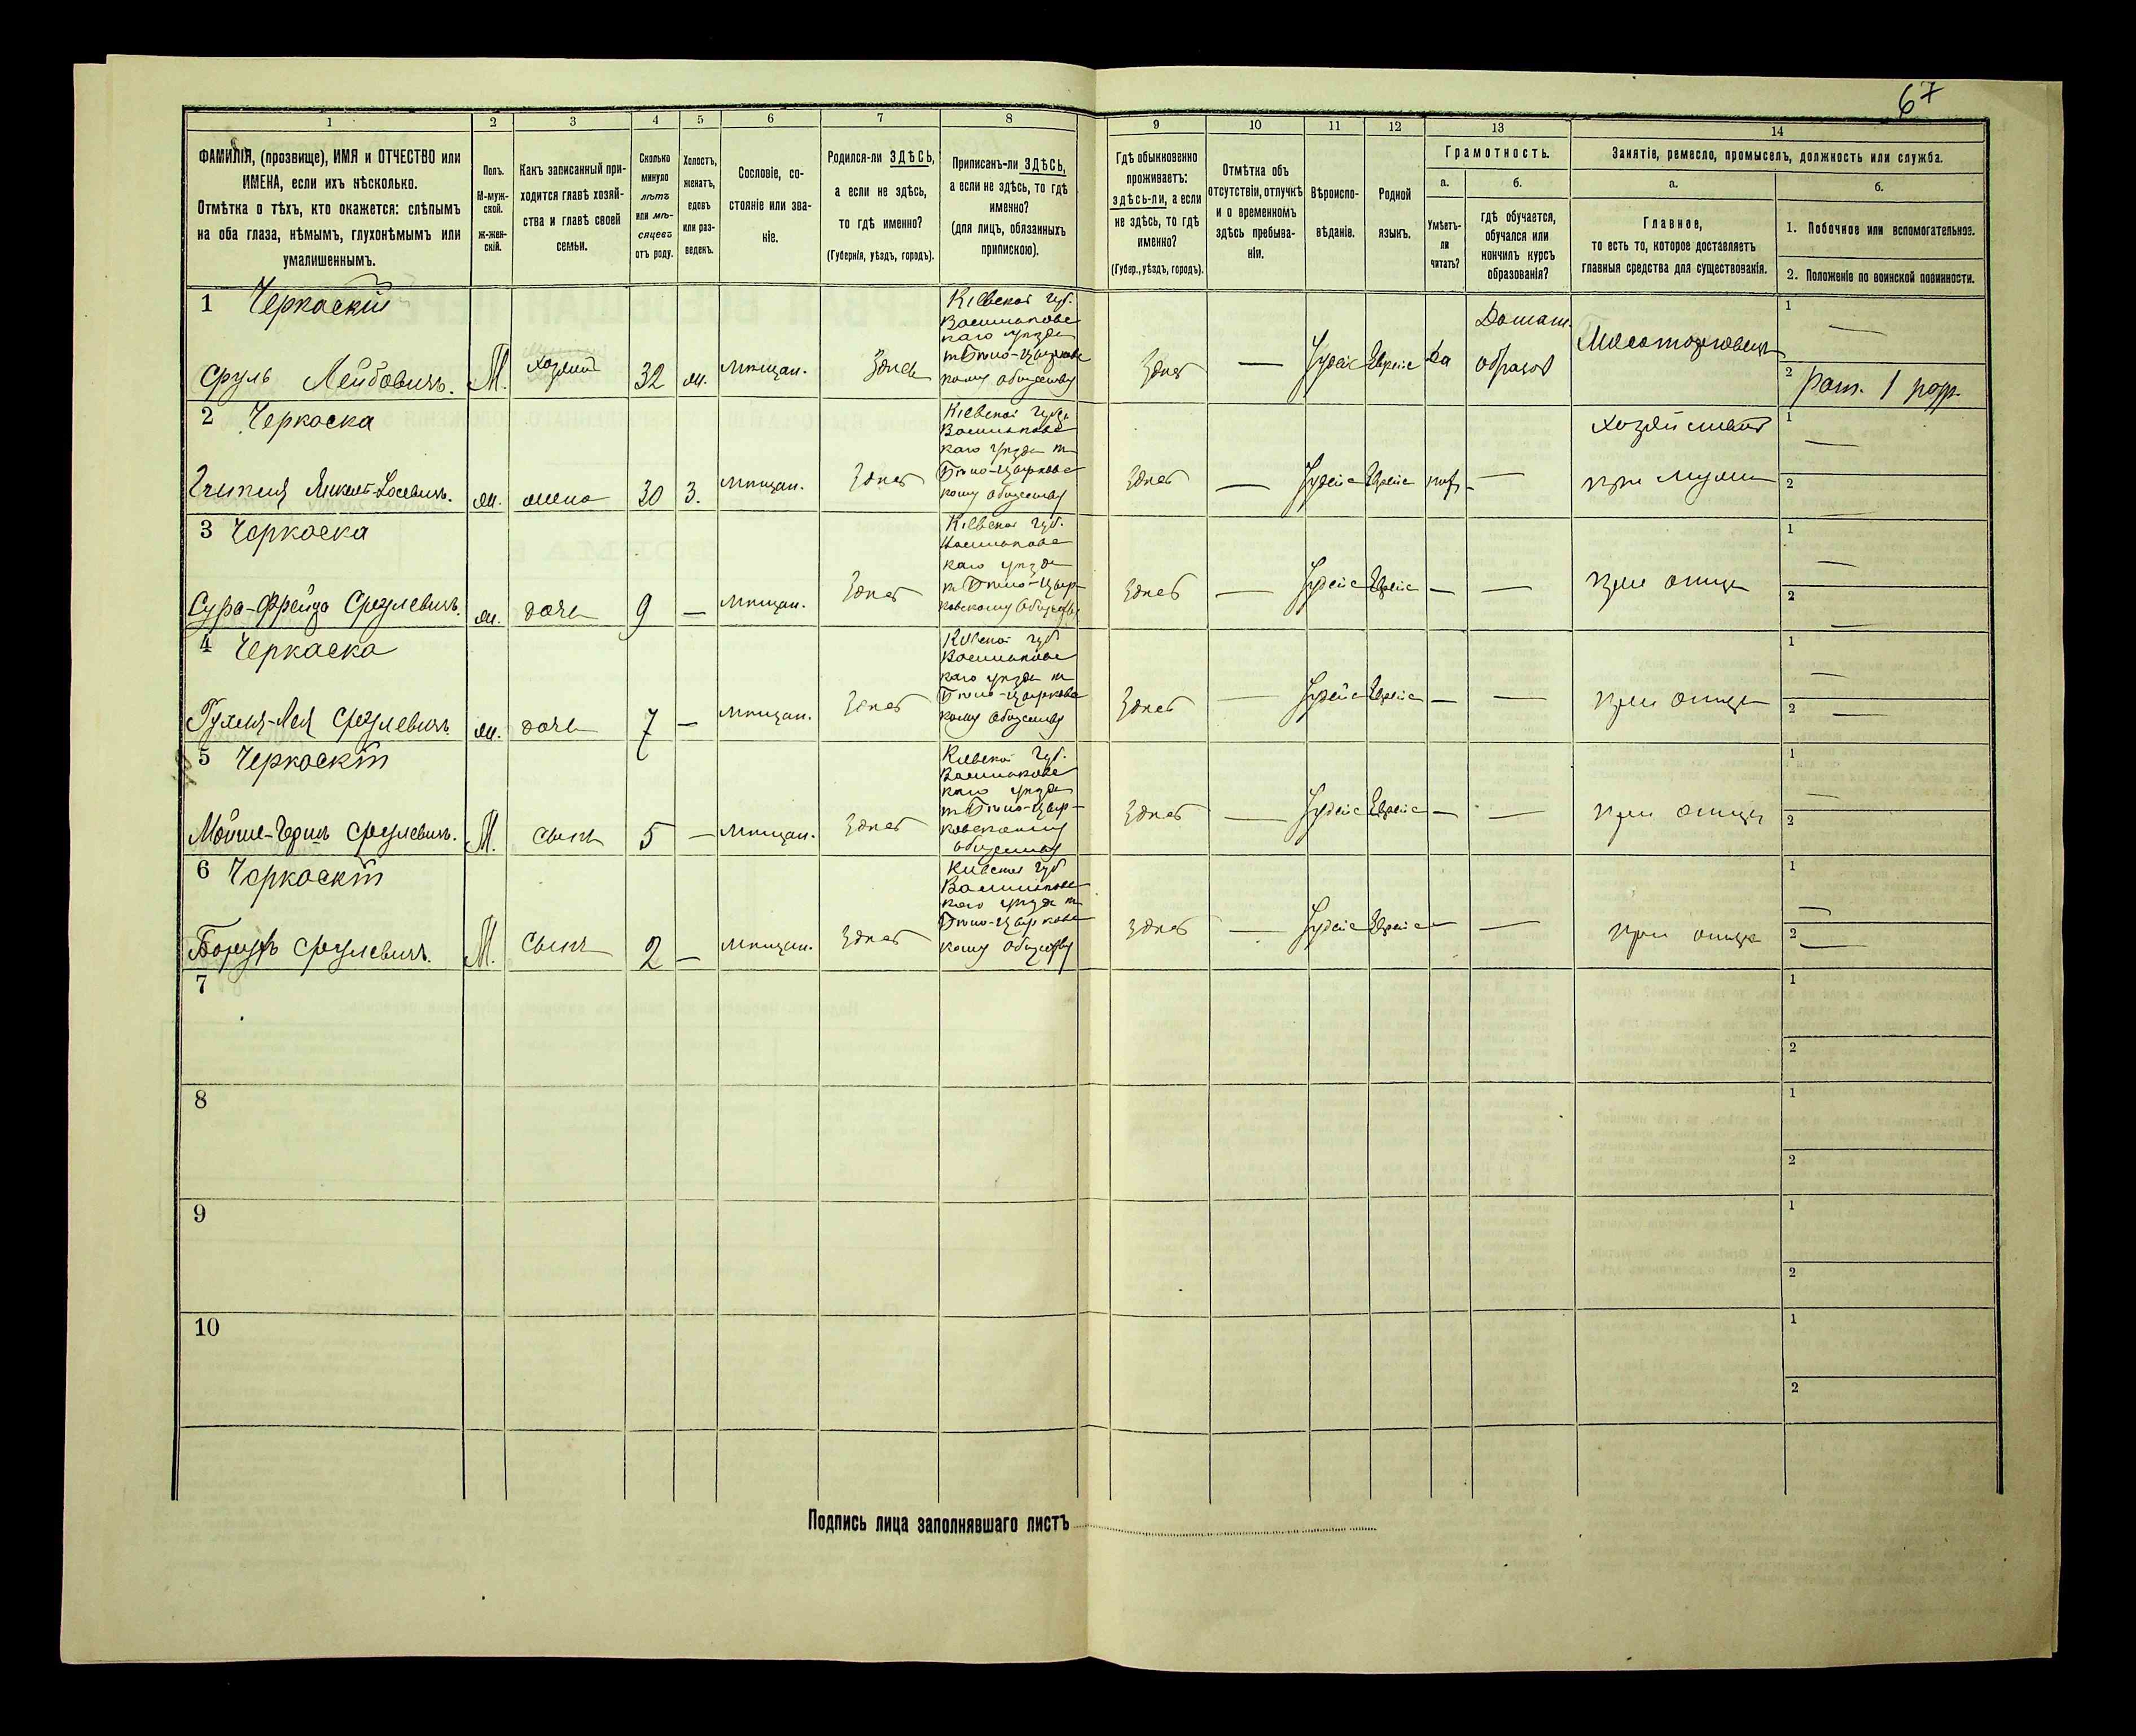 67
1 2 3 4 5 6 7 8 9 10 11 12 13 14
ФАМИЛІЯ, (прозвище), ИМЯ и ОТЧЕСТВО или
ИМЕНА, если ихъ нѣсколько.
Отмѣтка о тѣхъ, кто окажется: слѣпымъ
на оба глаза, нѣмымъ, глухонѣмымъ или
умалишеннымъ.
Полъ.
М-муж-
ской.
ж-жен-
скій.
Какъ записанный при-
ходится главѣ хозяй-
ства и главѣ своей
семьи.
Сколько
минуло
лѣтъ
или мѣ-
сяцевъ
отъ роду.
Холостъ,
женатъ,
вдовъ
или раз-
веденъ.
Сословіе, со-
стояніе или зва-
ніе.
Родился-ли ЗДѢСЬ,
а если не здѣсь,
то гдѣ именно?
(Губернія, уѣздъ, городъ).
Приписанъ-ли ЗДѢСЬ,
а если не здѣсь, то гдѣ
именно?
(для лицъ, обязанныхъ
припискою).
Гдѣ обыкновенно
проживаетъ:
здѣсь-ли, а если
не здѣсь, то гдѣ
именно?
(Губер., уѣздъ, городъ).
Отмѣтка объ
отсутствіи, отлучкѣ
и о временномъ
здѣсь пребыва-
ніи.
Вѣроиспо-
вѣданіе.
Родной
языкъ.
Грамотность.
а.
Умѣетъ-
ли
читать?
б.
гдѣ обучается,
обучался или
кончилъ курсъ
образованія?
Занятіе, ремесло, промыселъ, должность или служба.
а.
Главное,
то есть то, которое доставляетъ
главныя средства для существованія.
б.
1. Побочное или вспомогательное.
2. Положеніе по воинской повинности.
1 Черкаскій
Сруль Лейбовичъ.
М.
хозяинъ
32
ж.
мѣщан.
Здѣсь
Кіевской губ.
Васильковс
каго уѣзда
къ Бѣло-Церковс
кому обществу
Здѣсь
—
Іудейс
Еврейс
да
Домаш.
образов
1 —
2 рат. 1 разр.
2 Черкаска
ж.
жена
30
З.
мѣщан.
Здѣсь
Кіевской губ.
Васильковс
каго уѣзда къ
Бѣло-Церковс
кому обществу
Здѣсь
—
Іудейс
Еврейс
нѣт
—
хозяйством
при мужѣ
1 —
2 —
3 Черкаска
Сура-Фрейда Срулевичъ.
ж.
дочь
9
—
мѣщан.
Здѣсь
Кіевской губ.
Васильковс
каго уѣзда
къ Бѣло-Цер-
ковскому обществу
Здѣсь
—
Іудейс
Еврейс
—
—
при отцѣ
1 —
2 —
4 Черкаска
Рухля-Лея Срулевичъ
ж.
дочь
7
—
мѣщан.
Здѣсь
Кіевской губ
Васильковс
каго уѣзда къ
Бѣло-Церковс
кому обществу
Здѣсь
—
Іудейс
Еврейс
—
—
при отцѣ
1 —
2 —
5 Черкаскій
Мойше-Герш Срулевичъ.
М.
сынъ
5
—
мѣщан.
Здѣсь
Кіевской губ.
Васильковс
каго уѣзда
къ Бѣло-Цер-
ковскому
обществу
Здѣсь
—
Іудейс
Еврейс
—
—
при отцѣ
1 —
2
6 Черкаскій
Борухъ Срулевичъ.
М.
Сынъ
2
—
мѣщан.
Здѣсь
Кіевской губ
Васильковс
каго уѣзда къ
Бѣло-Церковс
кому обществу
Здѣсь
—
Іудейс
Еврейс
—
—
при отцѣ
1 —
2 —
7
1
2
8
1
2
9
1
2
10
1
2
Подпись лица заполнявшаго листъ